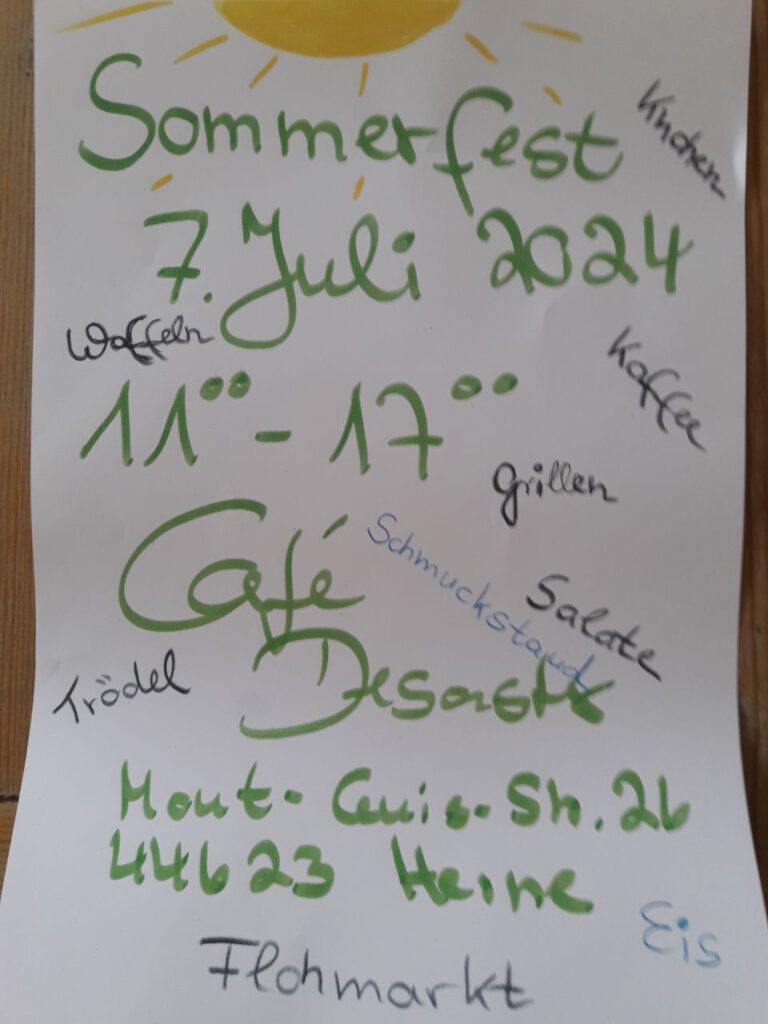 Sommerfest
Kuchen
7. Juli 2024
Waffeln
Kaffee
11°° - 17°°
Grillen
Café
Schmuckstand
Salate
Desaster
Trödel
Mont-Cenis-Str. 26
44623 Herne
Eis
Flohmarkt